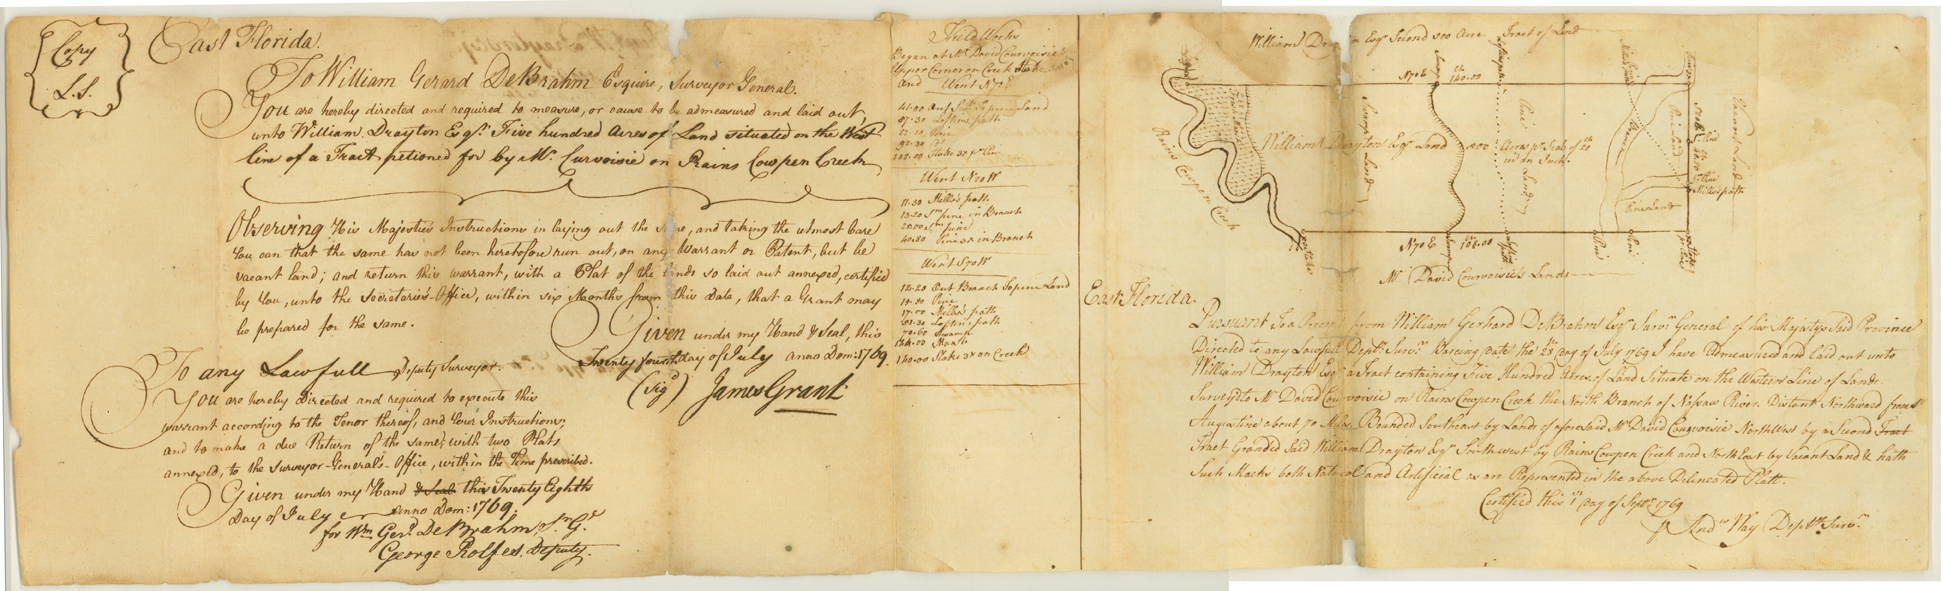 Copy
L.S.
East Florida.
To William Gerard DeBrahm Esquire, Surveyor General.
You are hereby directed and required to measure, or cause to be admeasured and laid out,
unto William Drayton Esqr. Five hundred Acres of Land situated on the West
line of a Tract petioned for by Mr. Curvoisie on Rains Cowpen Creek
Observing His Majesties Instructions in laying out the same, and taking the utmost Care
You can that the same has not been heretofore run out, on any Warrant or Patent, but be
vacant land; and return this warrant, with a Plat of the Lands so laid out annexed, certified
by You, unto the Secretaries-Office, within six Months from this Date, that a Grant may
be prepared for the same.
Given under my Hand & Seal, this
Twenty fourth day of July anno Dom: 1769.
(Sigd) James Grant
To any Lawfull Deputy Surveyor.
You are hereby directed and required to execute this
warrant according to the Tenor thereof, and Your Instructions;
and to make a due Return of the same, with two Plats
annexed, to the Surveyor-General's-Office, within the Time prescribed.
Given under my Hand & Seal this Twenty Eighth
Day of July Anno Dom: 1769.
for Wm. Gerd. DeBrahm Sr. Gl
George Rolfes, Deputy.
Field Works
Began at Mr. David Courvoisie's
Upper Corner on Creek Stake
and Went N70E
41.00 Out
87.30 Loftins path
Pine
102.00 Stake 3x pr. Pine
Went N20W
11.30 Mills's path
13.20 Sm. pine in Branch
20.00 Sm. pine
40.80 Pine 3x in Branch
Went S70W
12.20 Out Branch to pine Land
15.30 Pine
17.00 Mills's path
Loftins path
70.60 Swamp
Marsh
140.00 Stake 3x on Creek
William Drayton Esqr Second 500 Acre Tract of Land
N70E 140.00
Rains Cowpen Creek
William Drayton Esqr Land 500 Acres pr. Scale of 20
in an Inch.
Swamp Land
Pine Land
Pine Land
Pine Land
Vacant Land
Mills's path
N70E 102.00
Mr. David Courvoisie's Lands
East Florida.
Pursuant To a Precept from William Gerhard DeBrahm Esqr Survr General of his Majestys Said Province
Directed to any Lawfull Depty. Survr. Bearing Date the 28th Day of July 1769 I have admeasured and laid out unto
William Drayton Esqr a Tract containing Five Hundred Acres of Land Situate on the Western Line of Lands
Surveyd to Mr David Courvoisie on Rains Cowpen Creek the North Branch of Nassaw River. Distant Northward from St
Augustine about 70 Miles Bounded Southeast by Lands of aforesaid Mr. David Courvoisie Northwest by a Second Tract
Tract Granded Said William Drayton Esqr Southwest by Rains Cowpen Creek and NorthEast by Vacant Land & hath
Such Marks both Natural and Artificial as are Represented in the above Delineated Platt.
Certified this 1st Day of Septr. 1769
pr Andw Way Depty Survr.